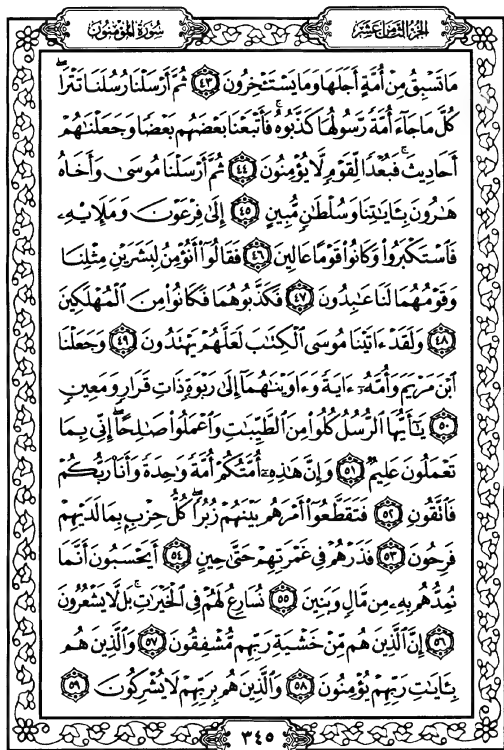 سُورَةُ المُؤْمِنُونَ
الجُزْءُ الثَّامِنَ عَشَرَ
مَا تَسْبِقُ مِنْ أُمَّةٍ أَجَلَهَا وَمَا يَسْتَـْٔخِرُونَ ٤٣ ثُمَّ أَرْسَلْنَا رُسُلَنَا تَتْرَاۖ
كُلَّ مَا جَآءَ أُمَّةً رَّسُولُهَا كَذَّبُوهُۚ فَأَتْبَعْنَا بَعْضَهُم بَعْضًا وَجَعَلْنَٰهُمْ
أَحَادِيثَۚ فَبُعْدًا لِّقَوْمٍ لَّا يُؤْمِنُونَ ٤٤ ثُمَّ أَرْسَلْنَا مُوسَىٰ وَأَخَاهُ
هَٰرُونَ بِـَٔايَٰتِنَا وَسُلْطَٰنٍ مُّبِينٍ ٤٥ إِلَىٰ فِرْعَوْنَ وَمَلَإِيْهِۦ
فَٱسْتَكْبَرُوا۟ وَكَانُوا۟ قَوْمًا عَالِينَ ٤٦ فَقَالُوٓا۟ أَنُؤْمِنُ لِبَشَرَيْنِ مِثْلِنَا
وَقَوْمُهُمَا لَنَا عَٰبِدُونَ ٤٧ فَكَذَّبُوهُمَا فَكَانُوا۟ مِنَ ٱلْمُهْلَكِينَ
٤٨ وَلَقَدْ ءَاتَيْنَا مُوسَى ٱلْكِتَٰبَ لَعَلَّهُمْ يَهْتَدُونَ ٤٩ وَجَعَلْنَا
ٱبْنَ مَرْيَمَ وَأُمَّهُۥٓ ءَايَةً وَءَاوَيْنَٰهُمَآ إِلَىٰ رَبْوَةٍ ذَاتِ قَرَارٍ وَمَعِينٍ
٥٠ يَٰٓأَيُّهَا ٱلرُّسُلُ كُلُوا۟ مِنَ ٱلطَّيِّبَٰتِ وَٱعْمَلُوا۟ صَٰلِحًاۖ إِنِّى بِمَا
تَعْمَلُونَ عَلِيمٌ ٥١ وَإِنَّ هَٰذِهِۦٓ أُمَّتُكُمْ أُمَّةً وَٰحِدَةً وَأَنَا۠ رَبُّكُمْ
فَٱتَّقُونِ ٥٢ فَتَقَطَّعُوٓا۟ أَمْرَهُم بَيْنَهُمْ زُبُرًاۖ كُلُّ حِزْبٍۭ بِمَا لَدَيْهِمْ
فَرِحُونَ ٥٣ فَذَرْهُمْ فِى غَمْرَتِهِمْ حَتَّىٰ حِينٍ ٥٤ أَيَحْسَبُونَ أَنَّمَا
نُمِدُّهُم بِهِۦ مِن مَّالٍ وَبَنِينَ ٥٥ نُسَارِعُ لَهُمْ فِى ٱلْخَيْرَٰتِۚ بَل لَّا يَشْعُرُونَ
٥٦ إِنَّ ٱلَّذِينَ هُم مِّنْ خَشْيَةِ رَبِّهِم مُّشْفِقُونَ ٥٧ وَٱلَّذِينَ هُم
بِـَٔايَٰتِ رَبِّهِمْ يُؤْمِنُونَ ٥٨ وَٱلَّذِينَ هُم بِرَبِّهِمْ لَا يُشْرِكُونَ ٥٩
٣٤٥